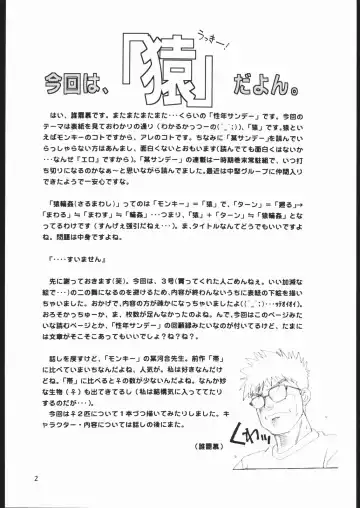 うっきー！
今回は、「猿」だよん。
はい、諸罪裏です。またまたまたまた・・・くらいの「性年サンデー」です。今回の
テーマは表紙を見ておわかりの通り（わかるかっつーの(^_^;)）、「猿」です。猿とい
えばモンキーのコトですから、アレのコトです。ちなみに「某サンデー」を読んでい
らっしゃらない方はあんまし、面白くないとおもいます(読んでても面白くはないか
・・・なんせ『エロ』ですから)。「某サンデー」の連載は一時期巻末常駐組で、いつ打
ち切りになるのかなぁーと思いながら読んでました。最近は中堅グループに仲間入り
できたようで一安心ですな。
「猿輪姦（さるまわし）」ってのは「モンキー」＝「猿」で、「ターン」＝「廻る」→
「まわる」≒「まわす」≒「輪姦」・・・つまり、「猿」＋「ターン」≒「猿輪姦」とな
ってるわけです（すんげぇ強引だねぇ…）。ま、タイトルなんてどうでもいいですよ
ね。問題は中身ですよねー。
『‥‥すいません』
先に謝っておきます(笑)。今回は、３号(買ってくれた人ごめんねぇ。いい加減な
絵で・・・)の二の舞になるのを避けるため、内容が終わんないうちに表紙の下絵を描い
ちゃいました。おかげで、内容の方が疎かになっちゃいましたよ((^_^;)…ｯﾃｵｲｵｲ)。
おろそかっちゅーか、ま、枚数が足んなかったのよね。んで、今回はこのページみた
いな読むページとか、「性年サンデー」の回顧録みたいなのが付いてるけど、たまに
は文章がそこそこあってもいいでしょー？ねっ？
話しを戻すけど、「モンキー」の某河合先生。前作「帯」
に比べていまいちなんだよね、人気が。私は好きなんだけ
どね。「帯」に比べると♀の数が少ないんだよね。なんか妙
な生物（♀）も出てきてるし（私は結構気に入っててたり
するのだが…）。
今回は♀２匹について１本づつ描いてみたりしました。キ
ャラクター・内容については話しの後にまた。
（諸罪裏）
2